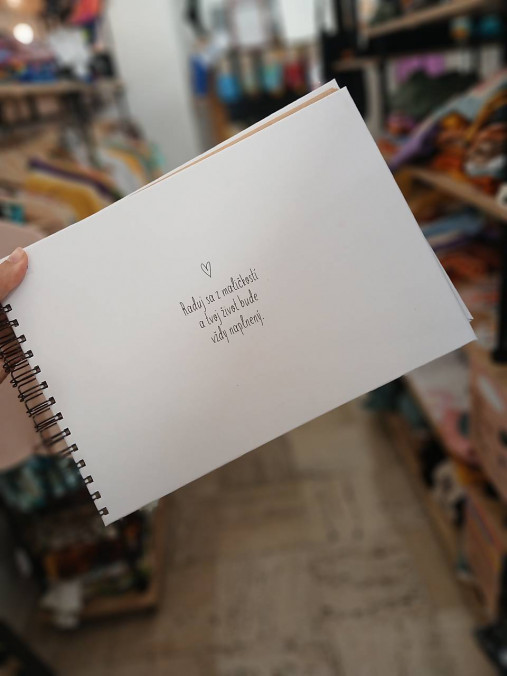 Raduj sa z maličkostí
a tvoj život bude
vždy naplnený.